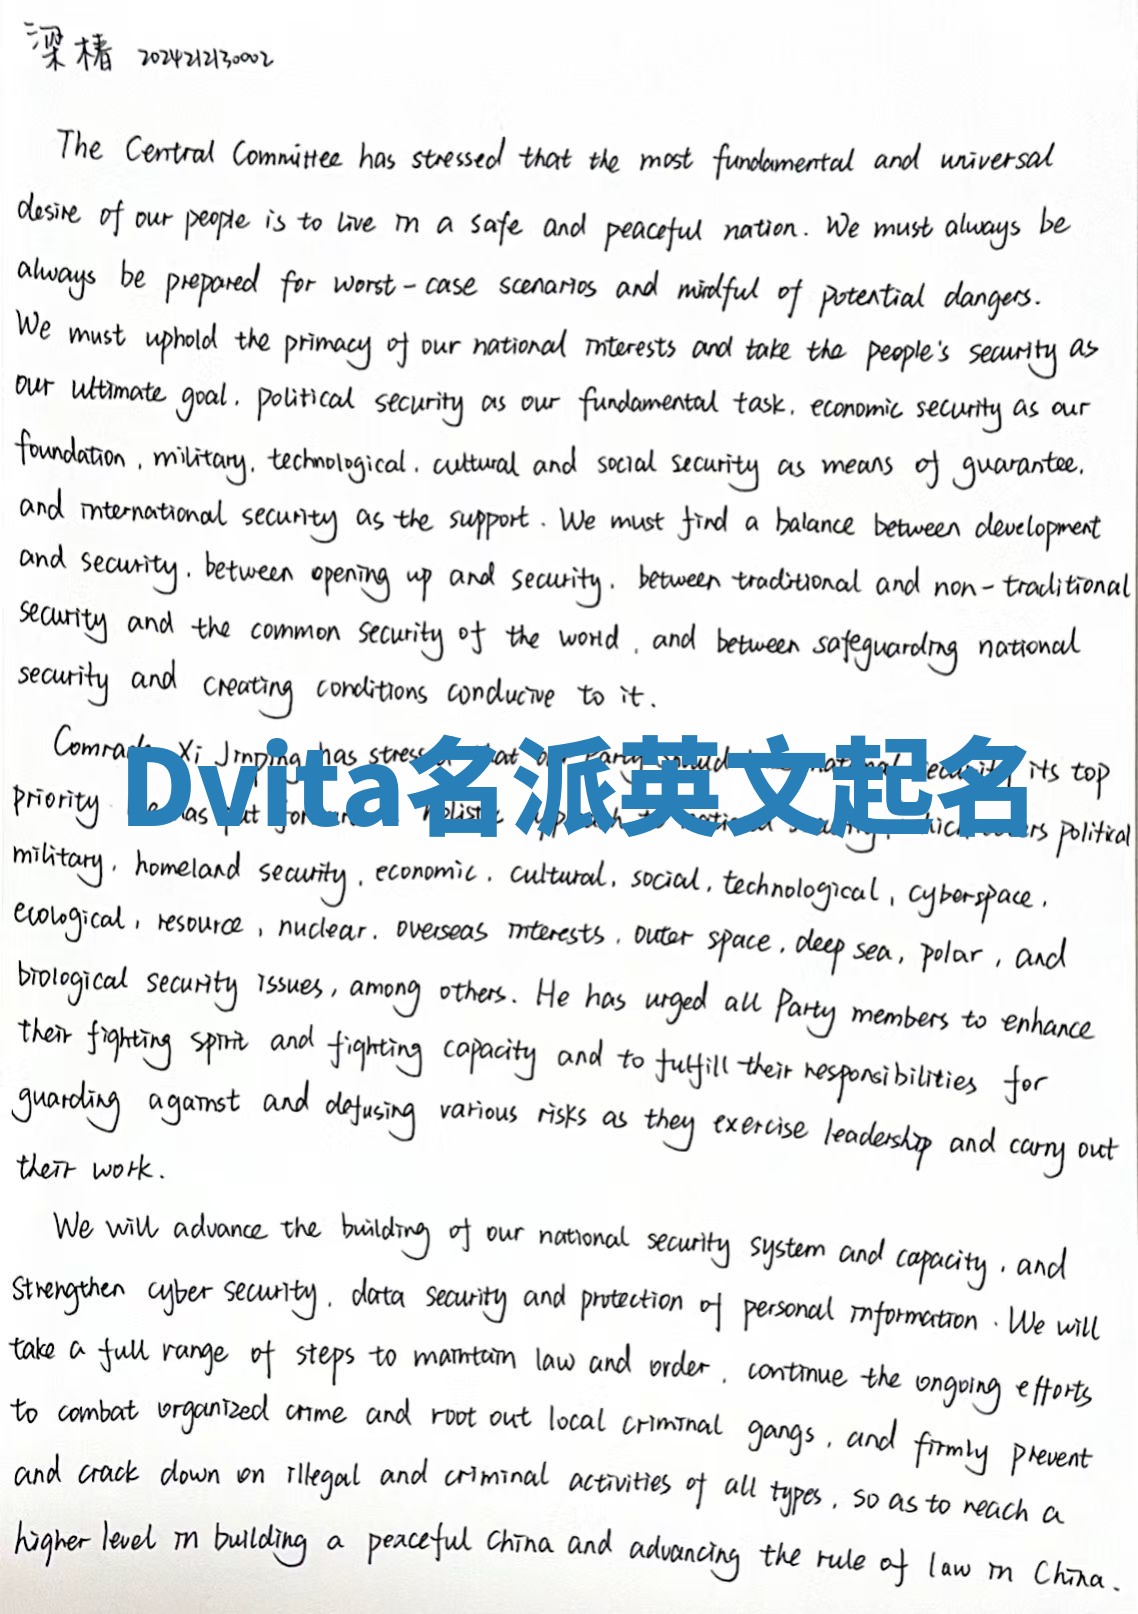 梁椿 2024212130002
The Central Committee has stressed that the most fundamental and universal
desire of our people is to live in a safe and peaceful nation. We must always be
always be prepared for worst-case scenarios and mindful of potential dangers.
We must uphold the primacy of our national interests and take the people's security as
our ultimate goal, political security as our fundamental task, economic security as our
foundation, military, technological, cultural and social security as means of guarantee,
and international security as the support. We must find a balance between development
and security, between opening up and security, between traditional and non-traditional
security and the common security of the world, and between safeguarding national
security and creating conditions conducive to it.
Comrade Xi Jinping has stressed that our Party should national security its top
Dvita名派英文起名
priority He has put forward holistic approach to national security, which covers political
military, homeland security, economic, cultural, social, technological, cyberspace,
ecological, resource, nuclear, overseas interests, outer space, deep sea, polar, and
biological security issues, among others. He has urged all Party members to enhance
their fighting spirit and fighting capacity and to fulfill their responsibilities for
guarding against and defusing various risks as they exercise leadership and carry out
their work.
We will advance the building of our national security system and capacity, and
strengthen cyber security, data security and protection of personal information. We will
take a full range of steps to maintain law and order, continue the ongoing efforts
to combat organized crime and root out local criminal gangs, and firmly prevent
and crack down on illegal and criminal activities of all types, so as to reach a
higher level in building a peaceful China and advancing the rule of law in China.